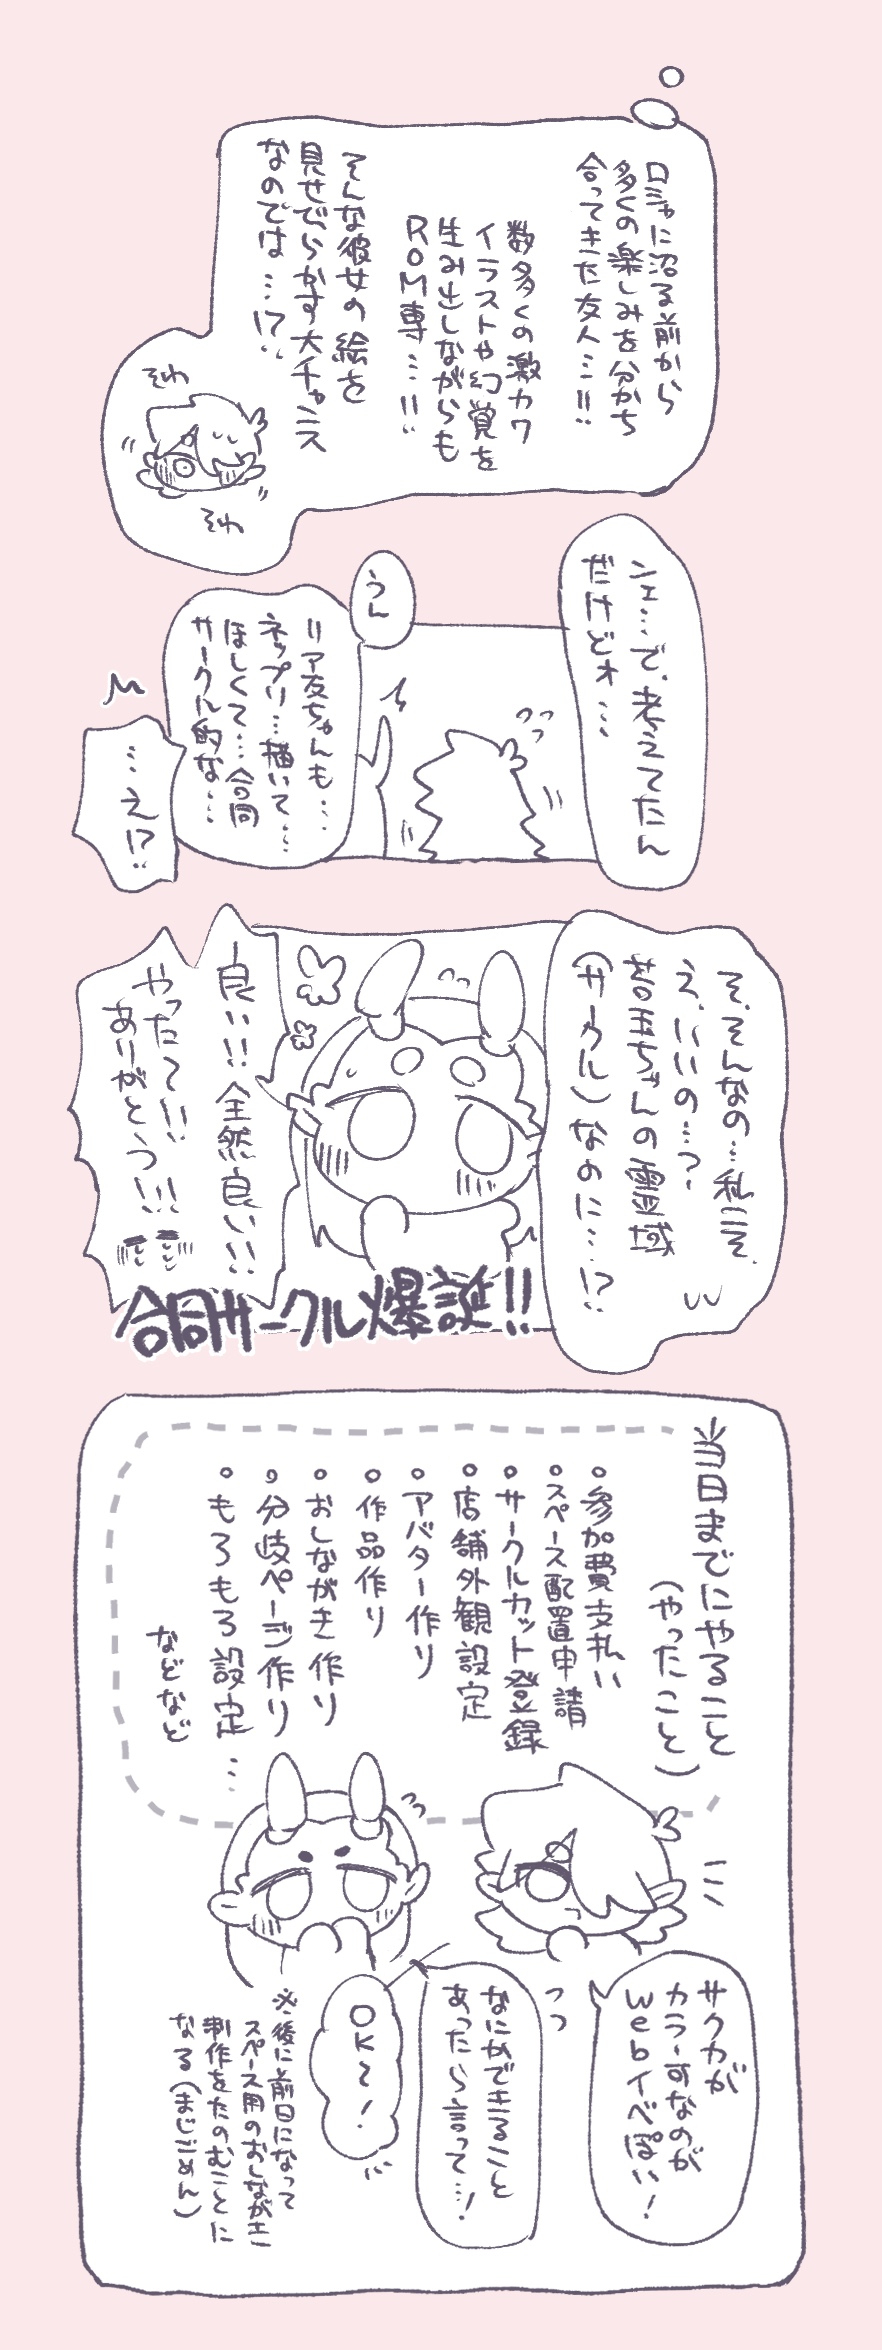 ロシャに沼る前から
多くの楽しみを分かち
合ってきた友人…!!
数多くの激カワ
イラストや幻覚を
生み出しながらも
ROM専…!!
そんな彼女の絵を
見せびらかす大チャンス
なのでは…!?
そわ
そわ
シェ…で、考えてたん
だけどォ…
うん
リア友ちゃんも…
ネップリ…描いて…
ほしくて…合同
サークル的な…
…え!?
そ、そんなの…私こそ
え、いいの…?
苔玉ちゃんの靈域
(サークル)なのに…!?
良い!!全然良い!!
やったー!!
ありがとう!!!
合同サークル爆誕!!
当日までにやること
(やったこと)
・参加費支払い
・スペース配置申請
・サークルカット登録
・店舗外観設定
・アバター作り
・作品作り
・おしながき作り
・分岐ページ作り
・もろもろ設定…
などなど
サクカが
カラーすなのが
webイベぽい!
なにかできること
あったら言って…!
OK〜!
※後に前日になって
スペース用のおしながき
制作をたのむことに
なる(まじごめん)